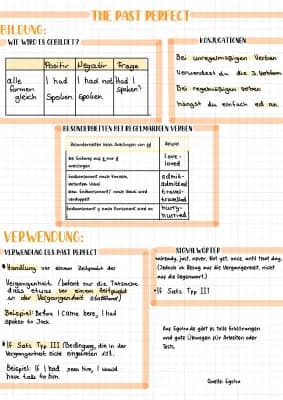 THE PAST PERFECT
BILDUNG:
WIE WIRD ES GEBILDET?
Positiv Negativ Frage
alle formen gleich
I had spoken
I had not spoken
Had I spoken?
KONJUGATIONEN
Bei unregelmäßigen Verben
verwendest du die 3. Verbform
Bei regelmäßigen verben
hängst du einfach ed an
BESONDERHEITEN BEI REGELMÄßIGEN VERBEN
Besonderheiten beim Anhängen von ed
Beispiel
love-
loved
admit-
admitted
travel-
travelled
hurry-
hurried
VERWENDUNG:
VERWENDUNG DES PAST PERFECT
Handlung vor einem Zeitpunkt der
Vergangenheit. (betont nur die Tatsache
dass etwas vor einem Zeitpunkt
in der Vergangenheit stattfand)
Beispiel: Before I came here, I had
spoken to Jack.
If Satz Typ III (Bedingung, die in der
Vergangenheit nicht eingetreten ist.
Beispiel: If I had seen him, I would
have talk to him
SIGNALWÖRTER
already, just, never, Not yet, once, until that day,
(Jedoch in Bezug aus die Vergangenheit, nicht
aus die Gegenwart.)
If Satz Typ III
Auf Egolva gibt es tolle Erklärungen
und gute Übungen für Arbeiten oder
Tests.